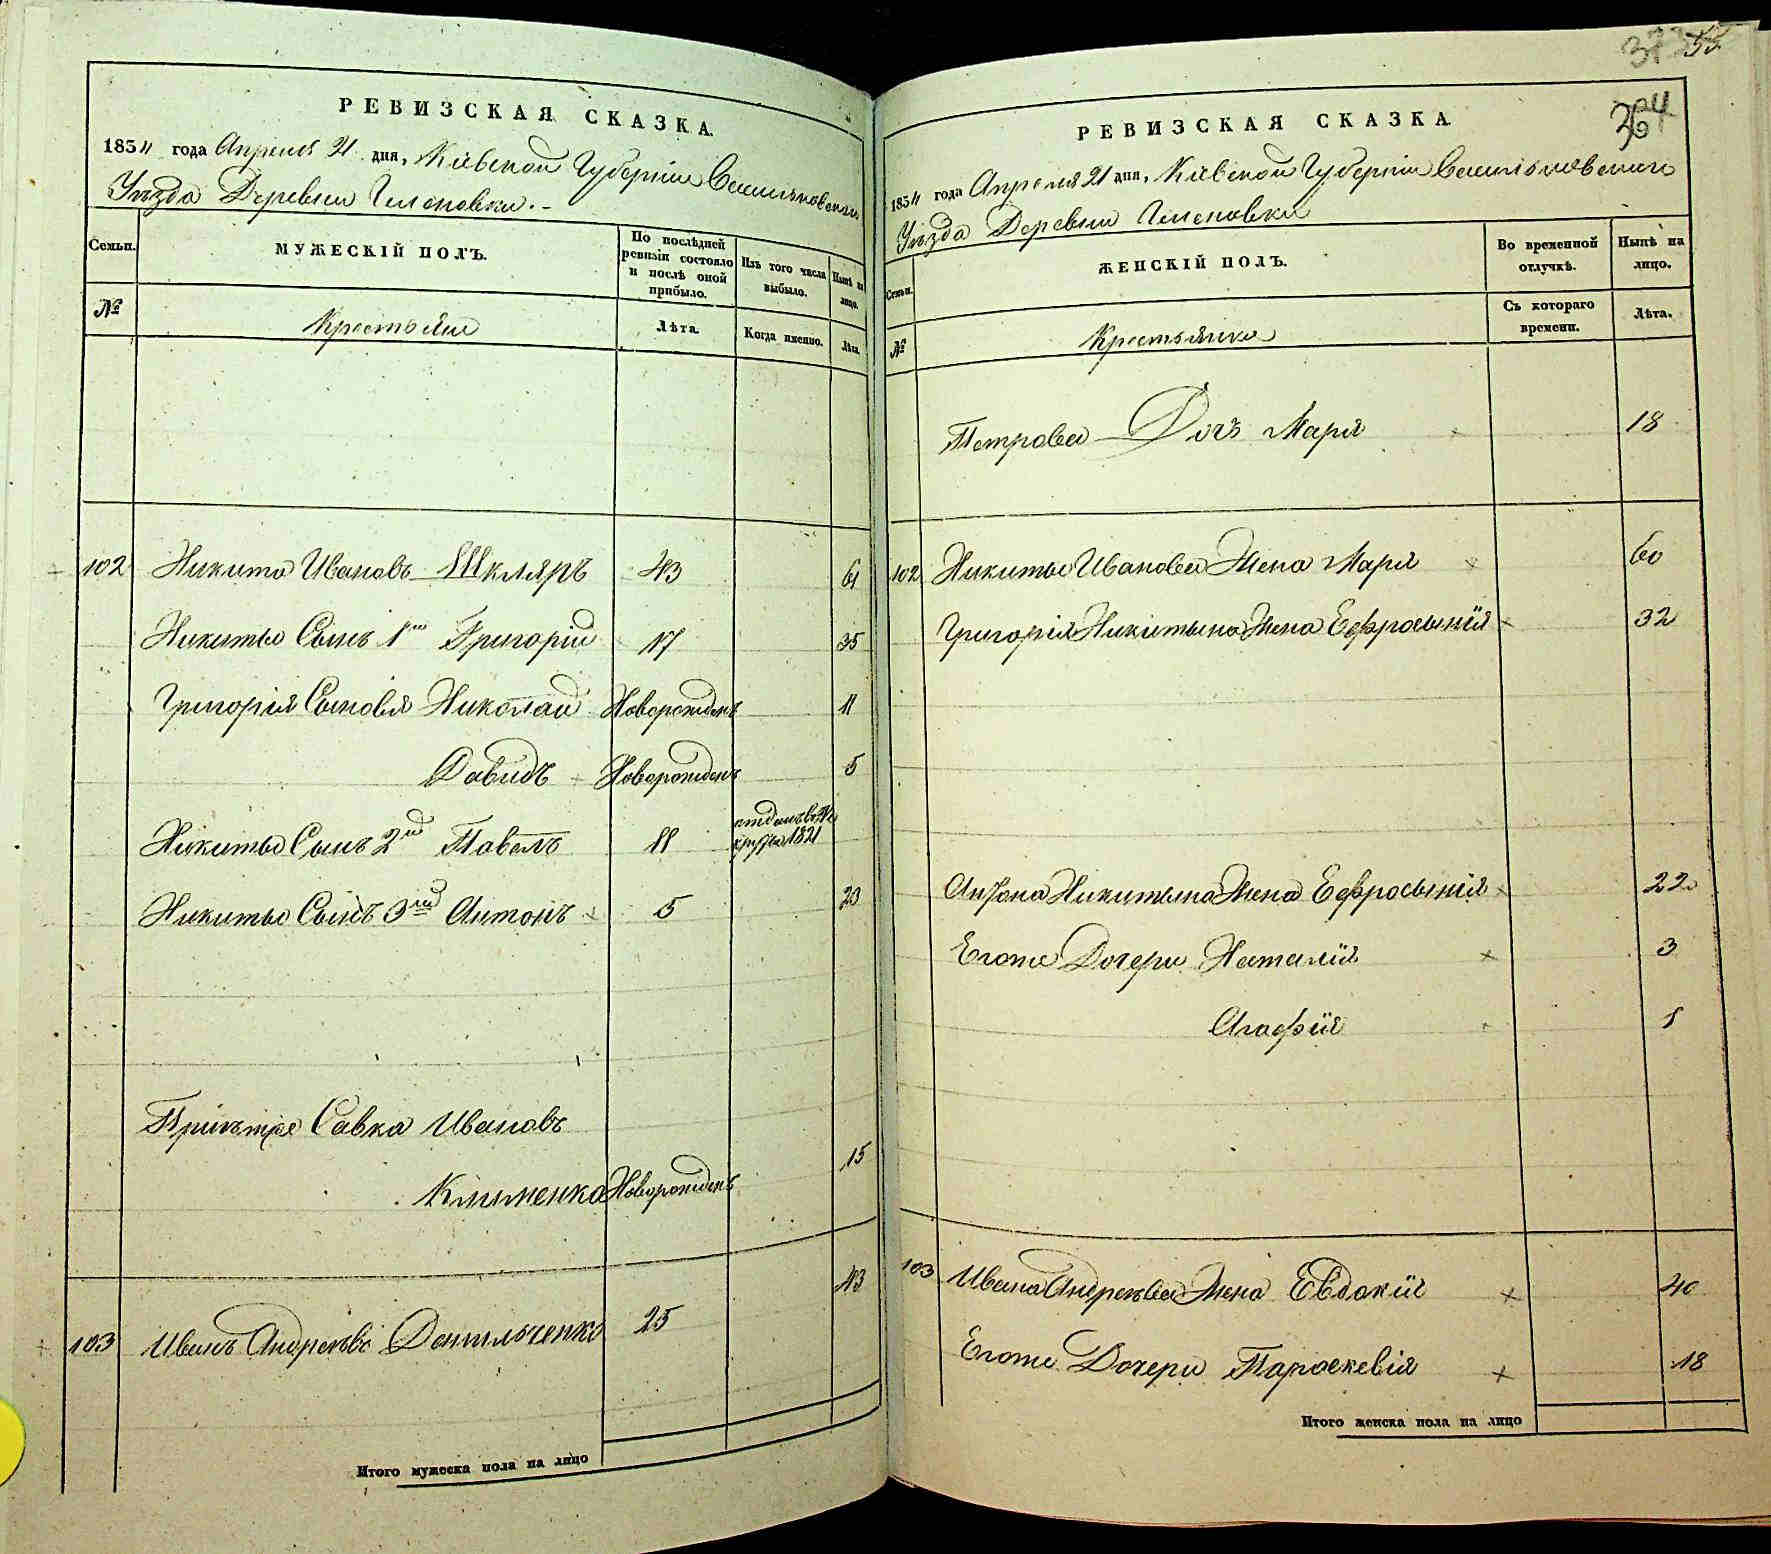 РЕВИЗСКАЯ СКАЗКА.
1854 года Апреля 21 дня, Кіевской Губерніи Васильковскаго
Уѣзда Деревни
Семьи.
МУЖЕСКІЙ ПОЛЪ.
По послѣдней ревизіи состояло и послѣ оной прибыло.
Изъ того числа выбыло.
Нынѣ на лицо.
№
Крестьяне
Лѣта.
Когда именно.
Лѣта.
102 Никита Ивановъ Шкляръ 43 61
Никиты Сынъ 1й Григорій 17 35
Григорія Сыновья Николай Новорожденъ 11
Давидъ Новорожденъ 5
Никиты Сынъ 2й Павелъ 11
Никиты Сынъ 3й Антонъ 5 23
Савка Ивановъ
Клименко Новорожденъ 15
103 Иванъ Андреевъ Данильченко 25 43
Итого мужеска пола на лицо
55
РЕВИЗСКАЯ СКАЗКА
1854 года Апреля 21 дня, Кіевской Губерніи Васильковскаго
Уѣзда Деревни
Семьи.
ЖЕНСКІЙ ПОЛЪ.
Во временной отлучкѣ.
Нынѣ на лицо.
№
Крестьянки
Съ котораго времени.
Лѣта.
Петрова Дочь Марія 18
102 Никиты Иванова Жена Марія 60
Григорія Никитына Жена Ефросынія 32
Антона Никитына Жена Ефросынія 22
Егоже Дочери Наталія 3
Агафія 1
103 Ивана Андреева Жена Евдокія 40
Егоже Дочери Параскевія 18
Итого женска пола на лицо